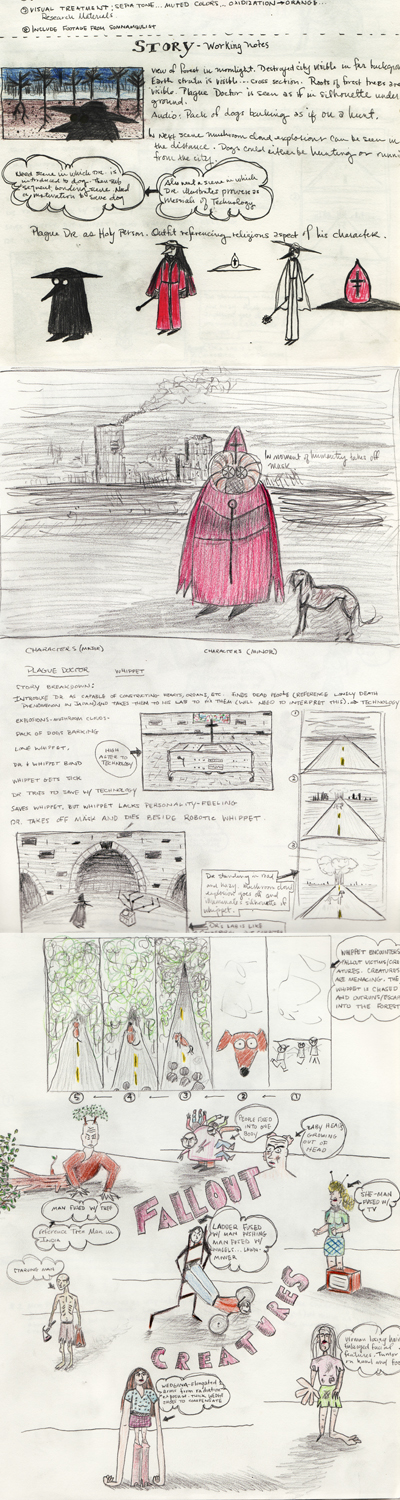 ③ VISUAL TREATMENT; SEPIA TONE... MUTED COLORS... OXIDIZATION → ORANGE...
Research Materials
④ INCLUDE FOOTAGE FROM SOMNAMBULIST
STORY - Working notes
View of forest in moonlight. Destroyed city visible in far background
Earth strata is visible... cross section. Roots of forest trees are
visible. Plague Doctor is seen as if in silhouette under
ground.
Audio: Pack of dogs barking as if on a hunt.
In Next scene mushroom cloud explosions can be seen in
the distance. Dogs could either be hunting or runni
from the city.
Need scene in which DR. is
introduced to dog. Then sub
sequent bonding scene. Need
motivation to save dog
Also want a scene in which
DR. illustrates prowess as
Messiah of Technology
Plague DR. as Holy Person. Outfit referencing religious aspect of his character.
In moment of humanity takes off
mask
CHARACTERS (MAJOR)
CHARACTERS (MINOR)
PLAGUE DOCTOR
WHIPPET
STORY BREAKDOWN:
INTRODUCE DR. AS CAPABLE OF CONSTRUCTING HEARTS, ORGANS, ETC. FINDS DEAD PEOPLE (REFERENCE LONELY DEATH
PHENOMENON IN JAPAN) AND TAKES THEM TO HIS LAB TO FIX THEM (WILL NEED TO INTERPRET THIS). → TECHNOLOGY
EXPLOSIONS - MUSHROOM CLOUDS.
PACK OF DOGS BARKING
LONE WHIPPET.
DR & WHIPPET BOND
WHIPPET GETS SICK
DR TRIES TO SAVE W/ TECHNOLOGY
SAVES WHIPPET, BUT WHIPPET LACKS PERSONALITY-FEELING
DR. TAKES OFF MASK AND DIES BESIDE ROBOTIC WHIPPET.
HIGH
ALTER TO
TECHNOLOGY
1
2
3
Dr standing in road
and hazy. Mushroom cloud
explosion goes off and
illuminates silhouette of
whippet.
DR'S LAB IS LIKE
WHIPPET ENCOUNTERS
FALLOUT VICTIMS/CRE
ATURES. CREATURES
ARE MENACING. THE
WHIPPET IS CHASED
AND OUTRUNS/ESCAP
INTO THE FOREST
⑤ ← ④ ← ③ ← ② ← ①
PEOPLE FUSED
INTO ONE
BODY
BABY HEAD
GROWING
OUT OF
HEAD
MAN FUSED W/ TREE
Reference Tree Man in
INDIA
FALLOUT
SHE-MAN
FUSED W/
TV
LADDER FUSED
W/ MAN PUSHING
MAN FUSED W/
WHEELS... LAWN-
MOWER
STARVING MAN
CREATURES
WEDGING-Elongated
arms from radiation
exposure. Torso
sizes to compensate
Woman
enlarged facial
features. Tumor
on hand and foot